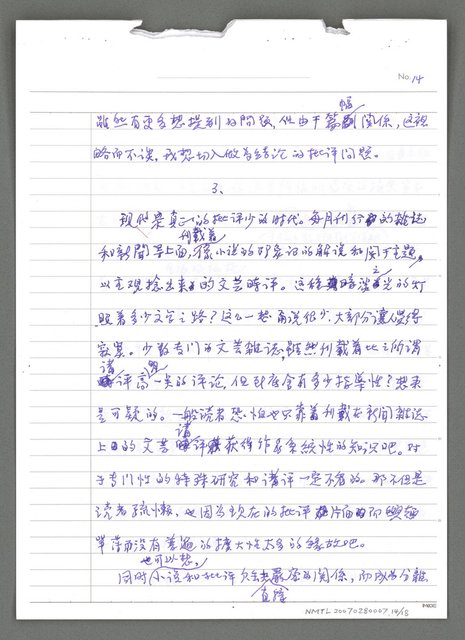 No. 14
雖然有更多想提到的問題,但由于篇幅關係,這裡
略而不談,我想切入做為結論的批評問題。
3、
現代是真正的批評少的時代。每月刊行的雜誌
刊載着
和新聞等上面,像小說的印象記的解說和關于主題
以主觀捻出來的文芸時評。這種暗淡之光的灯
照着多少文学之路?這么一想 再說很少,大部分讓人覺得
寂寞。少數専门的文芸雜誌,雖然刊載着比之所謂
諸
評高一点的評論,但到底含有多少指導性?想來
是可疑的。一般読者恐怕也只靠着刊載在新聞雜誌
上的文芸諸評獲得作品系統性的知識吧。对
于専门性的特殊研究和諸評一定不看的。那不但是
読者疏懶,也因為現在的批評片面而
單薄而沒有普遍的擴大性太多的緣故吧。
也可以想,
同時小說和批評欠去嚴密的關係,而成為分離
NMTL 20070280007 14/18